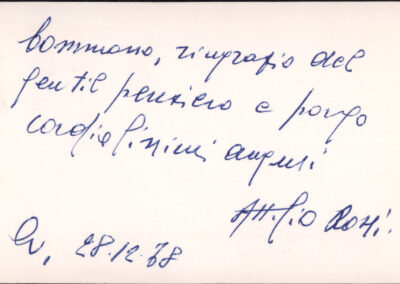 Commosso, ringrazio del
gentil pensiero e porgo
cordialissimi auguri
Attilio Rossi.
28.12.78